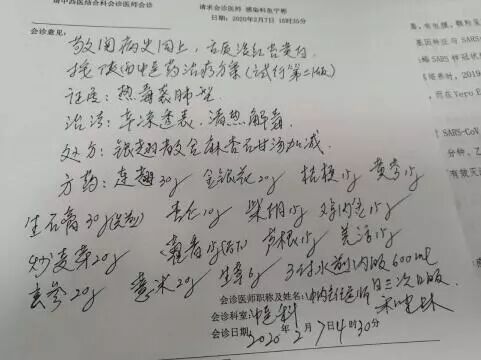 请中西医结合科会诊医师会诊
请求会诊医师 感染科
日期：2020年2月7日 16时30分
会诊意见：
敬阅病史同上，舌质淡红苔黄白，
按陕西中医药治疗方案（试行第二版）
证属：热毒袭肺型
治法：辛凉透表，清热解毒。
处方：银翘散合麻杏石甘汤加减。
方药：连翘30g 金银花20g 桔梗15g 黄芩15g
生石膏30g(先煎) 杏仁10g 柴胡15g 鸡内金15g
炒麦芽20g 藿香15g(后下) 芦根15g 姜活15g
玄参20g 薏米20g 生草6g 3付水煎内服600ml
日三次口服
会诊医师职称及姓名：
会诊科室：中医科
会诊日期：2020年2月7日4时30分
基因特征与SARS-
SARS-CoV